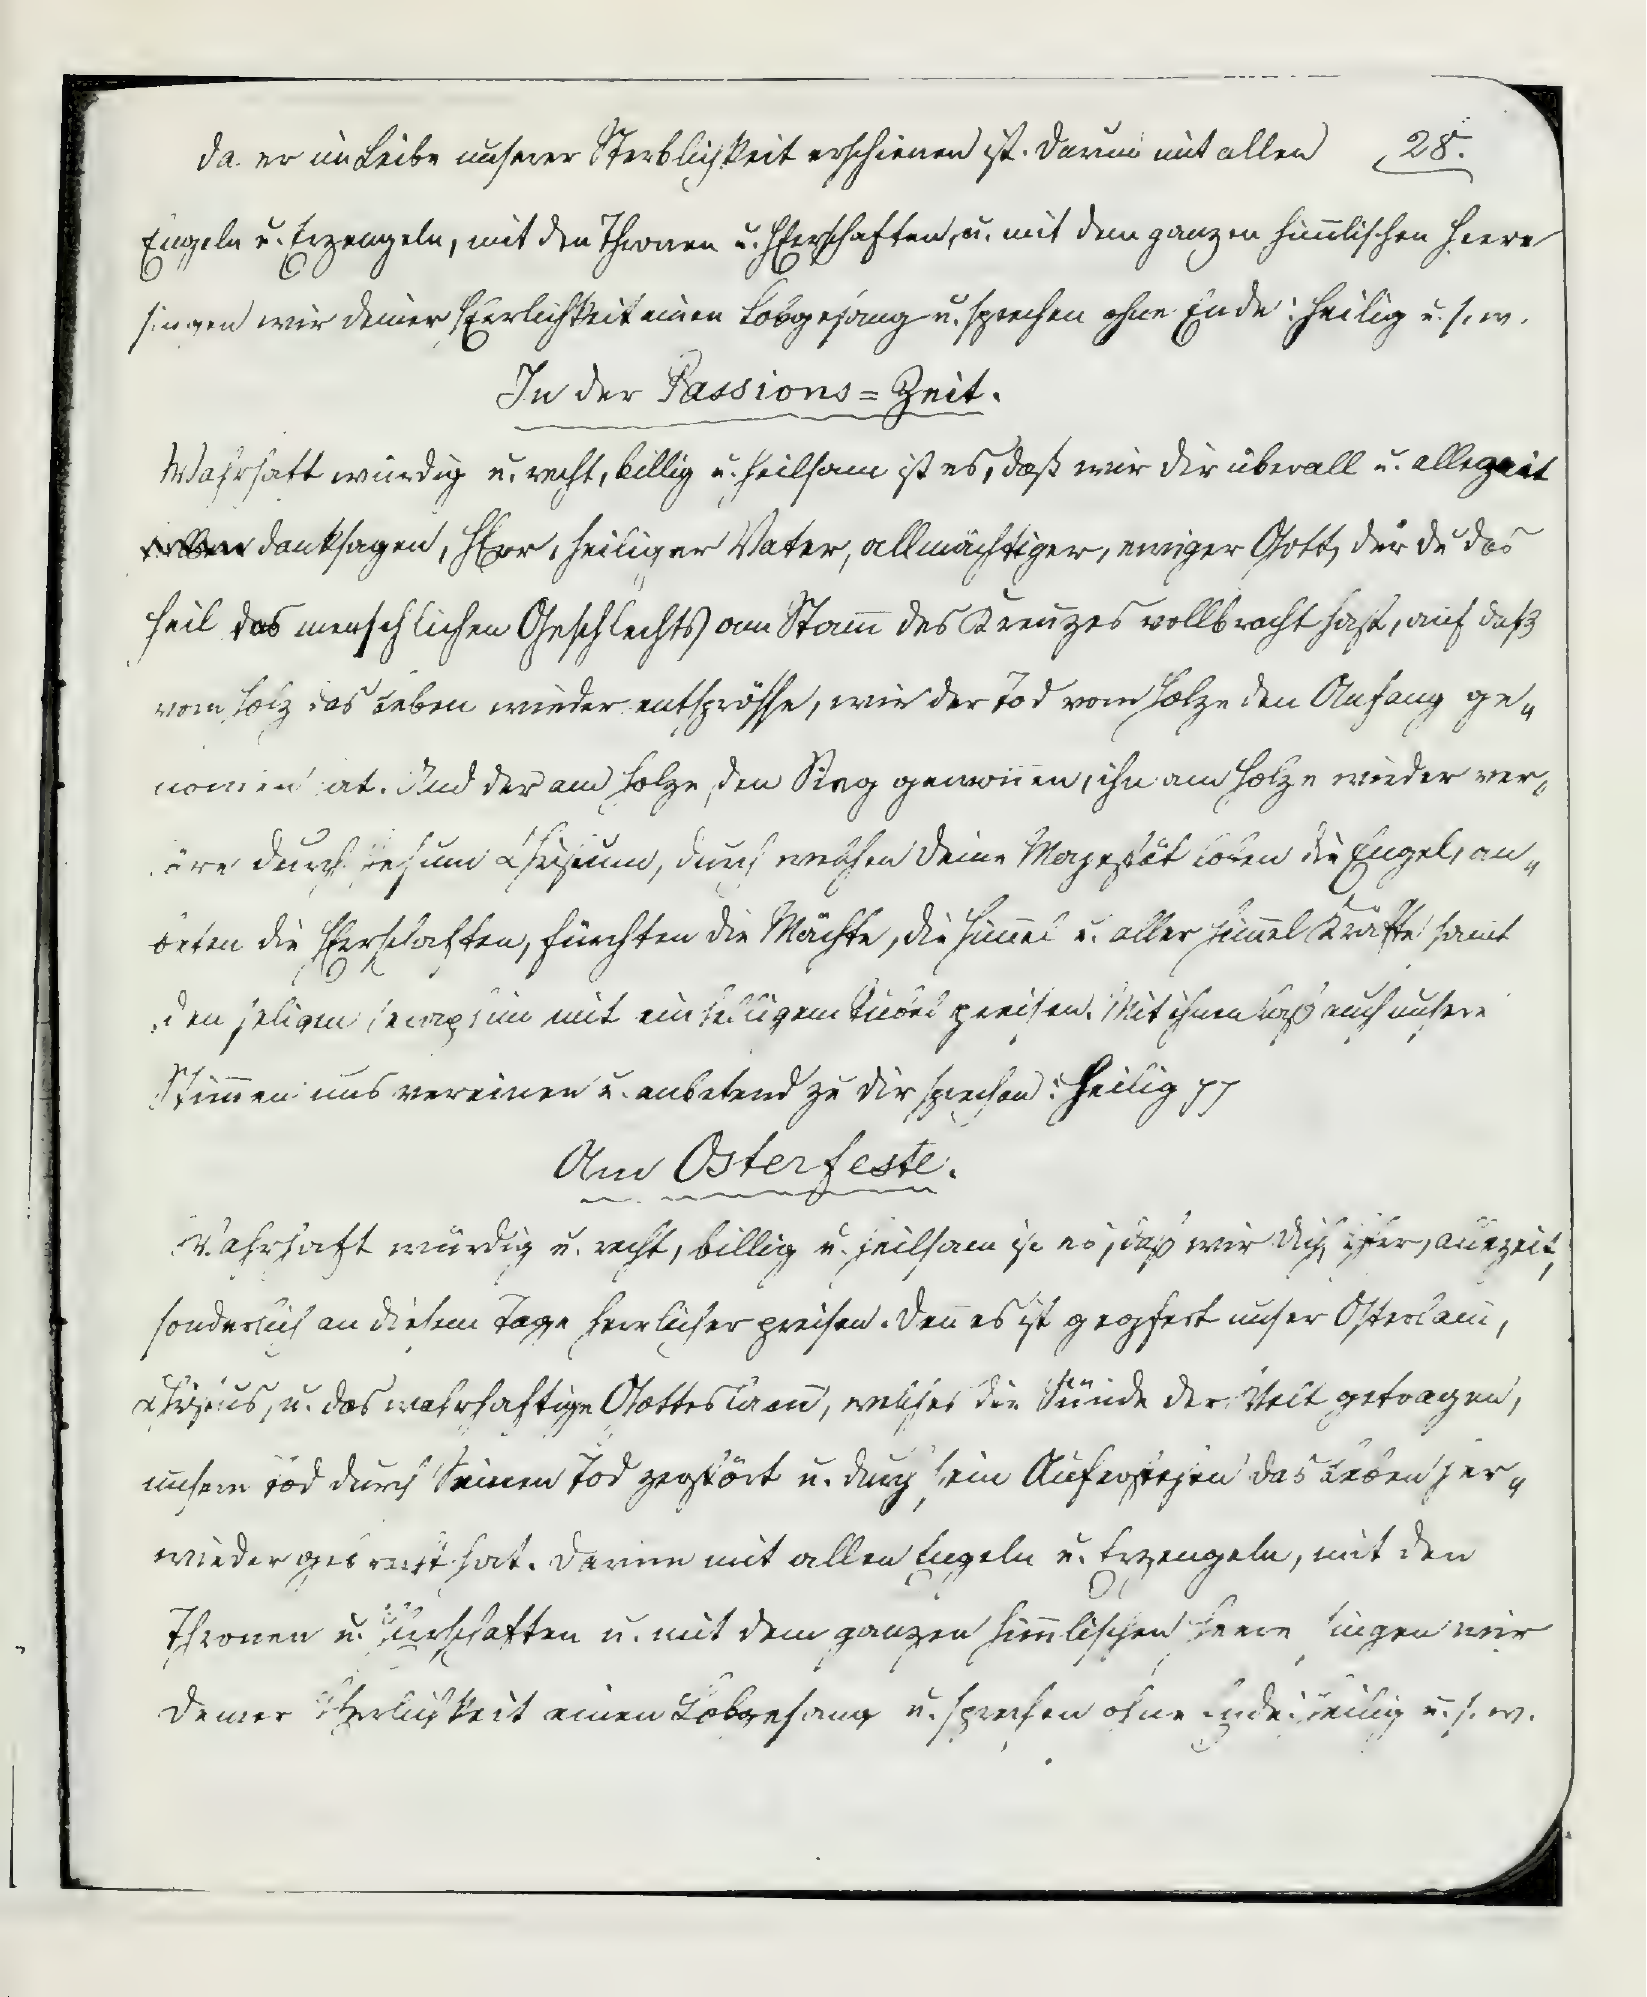 da er im Leibe unserer Sterblichkeit erschienen ist. Darum mit allen 28.
Engeln u. Erzengeln, mit den Thronen u. HErrschaften, u. mit dem ganzen him̅lischen Heere
singen wir deiner HErrlichkeit einen Lobgesang u. sprechen ohne Ende: Heilig u. s. w.
In der Passions=Zeit.
Wahrhaft würdig u. recht, billig u. heilsam ist es, daß wir dir überall u. allezeit
danksagen, HErr, heiliger Vater, allmächtiger, ewiger Gott, der du das
Heil des menschlichen Geschlechts am Stam̅ des Kreuzes vollbracht hast, auf daß
vom Holz das Leben wieder entsprösse, wie der Tod vom Holze den Anfang ge„
nom̅en hat. Und der am Holze den Sieg gewon̅en, ihn am Holze wieder ver„
löre durch Jesum Christum, durch welchen deine Majestät loben die Engel, an„
beten die HErrschaften, fürchten die Mächte, die Him̅el u. aller Him̅el Kräfte samt
den seligen Seraphim mit einhelligem Jubel preisen. Mit ihnen laß auch unsere
Stim̅en uns vereinen u. anbetend zu dir sprechen: Heilig pp
Am Osterfeste.
Wahrhaft würdig u. recht, billig u. heilsam ist es, daß wir dich HErr, allezeit,
sonderlich an diesem Tage herrlicher preisen. Den̅ es ist geopfert unser Osterlam̅,
Christus, u. das wahrhaftige Gotteslam̅, welches die Sünde der Welt getragen,
unsern Tod durch Seinen Tod zerstört u. durch sein Auferstehen das Leben her„
wieder gebracht hat. Darum mit allen Engeln u. Erzengeln, mit den
Thronen u. HErrschaften u. mit dem ganzen him̅lischen Heere singen wir
Deiner HErrlichkeit einen Lobgesang u. sprechen ohne Ende: Heilig u. s. w.